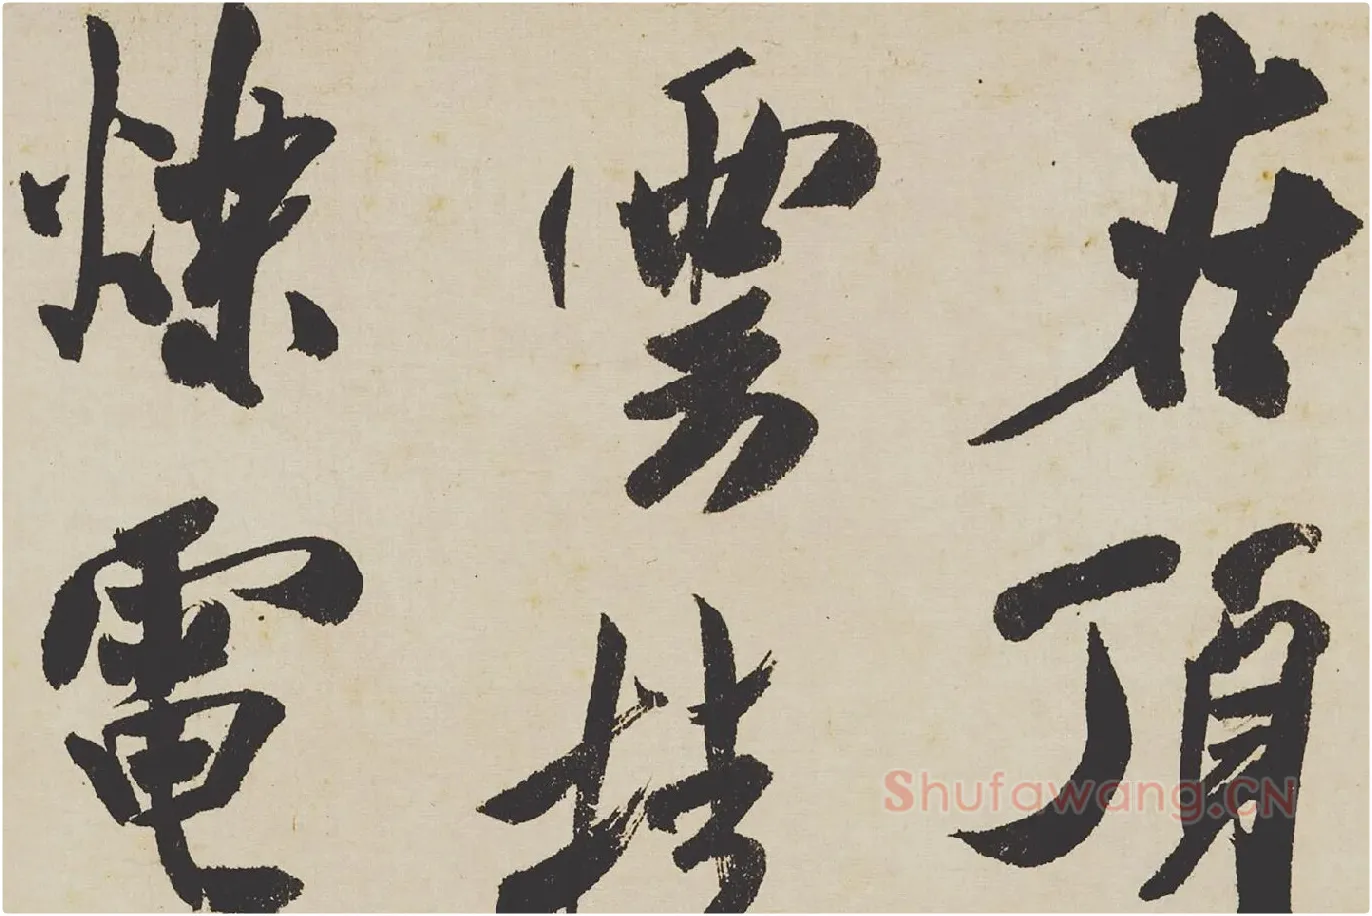 在頂
雲挂
爍電
Shufawang.CN